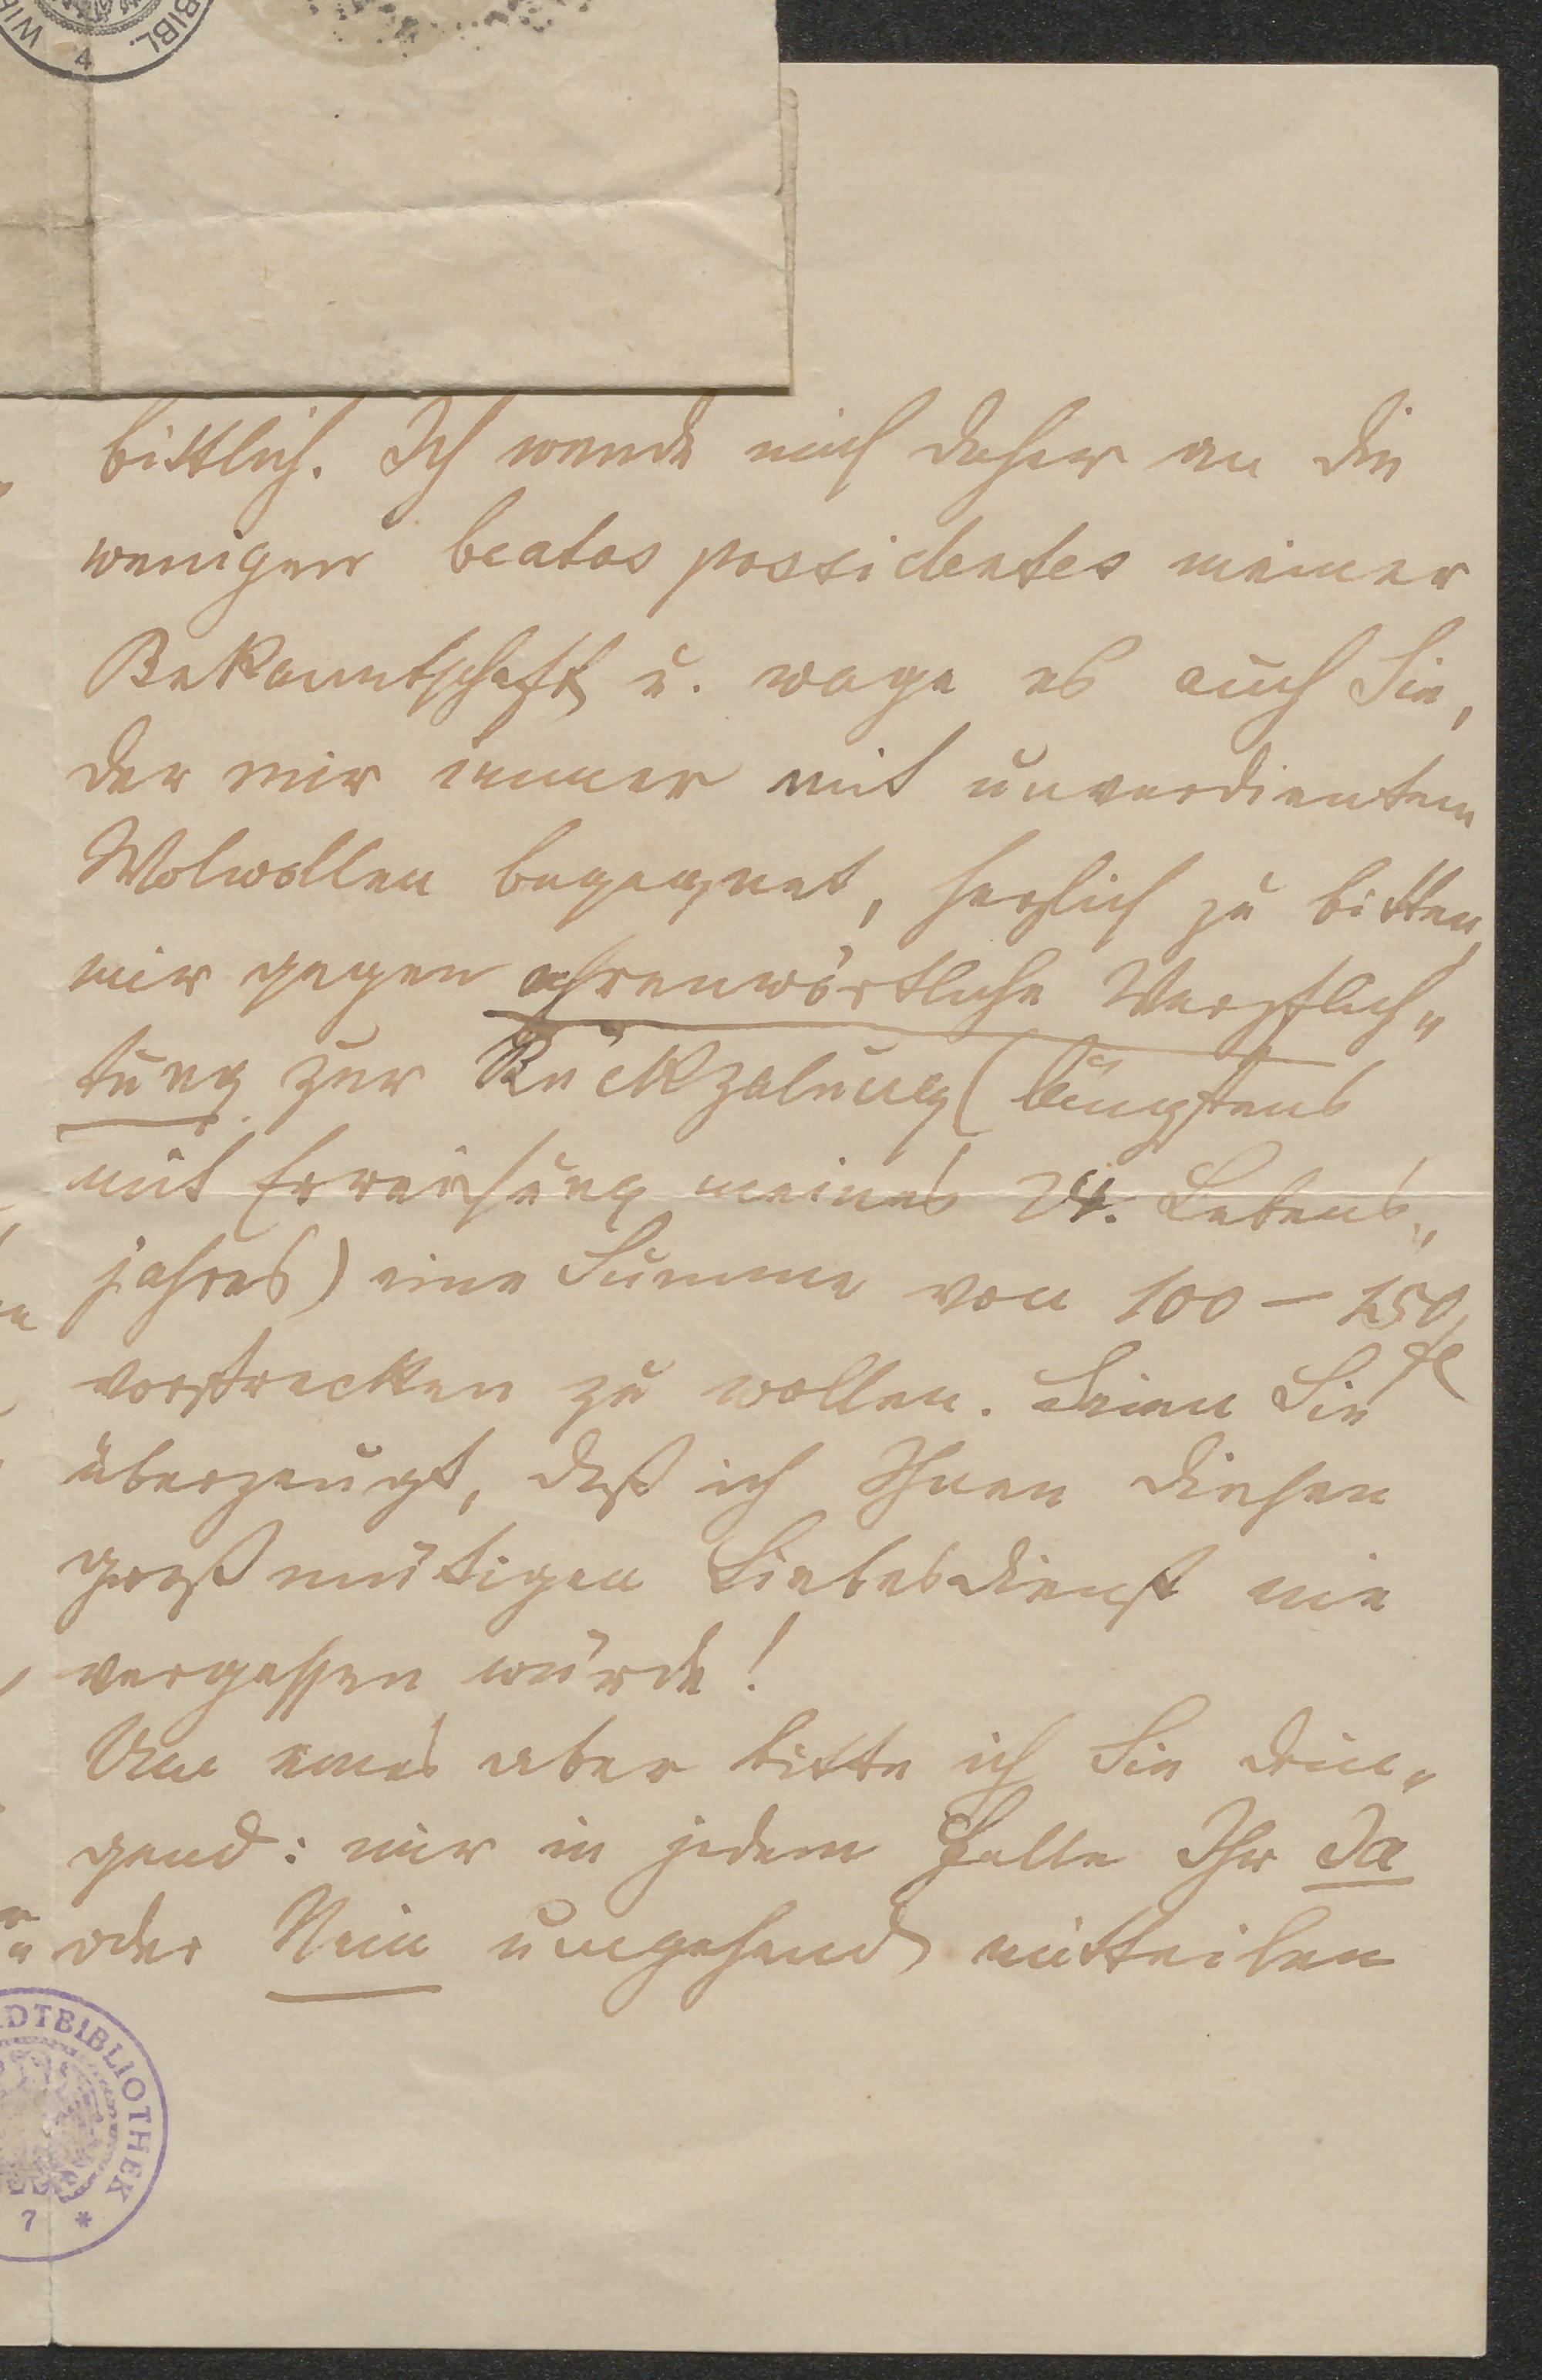 WIE
BIBL.
4
bittlich. Ich wende mich daher an die
wenigen beatos possidentes meiner
Bekanntschaft u. wage es auch Sie,
der mir immer mit unverdientem
Wolwollen begegnet, herzlich zu bitten,
mir gegen ehrenwörtliche Verpflich„
tung zur Rückzalung (längstens
mit Erreichung meines 24. Lebens„
jahres) eine Summe von 100 – 150
fl
vorstrecken zu wollen. Seien Sie
überzeugt, daß ich Ihnen diesen
großmütigen Liebesdienst nie
vergessen würde!
Um eines aber bitte ich Sie drin„
gend: mir in jedem Falle Ihr Ja
oder Nein umgehend mitteilen
DTBIBLIOTHEK
7 *